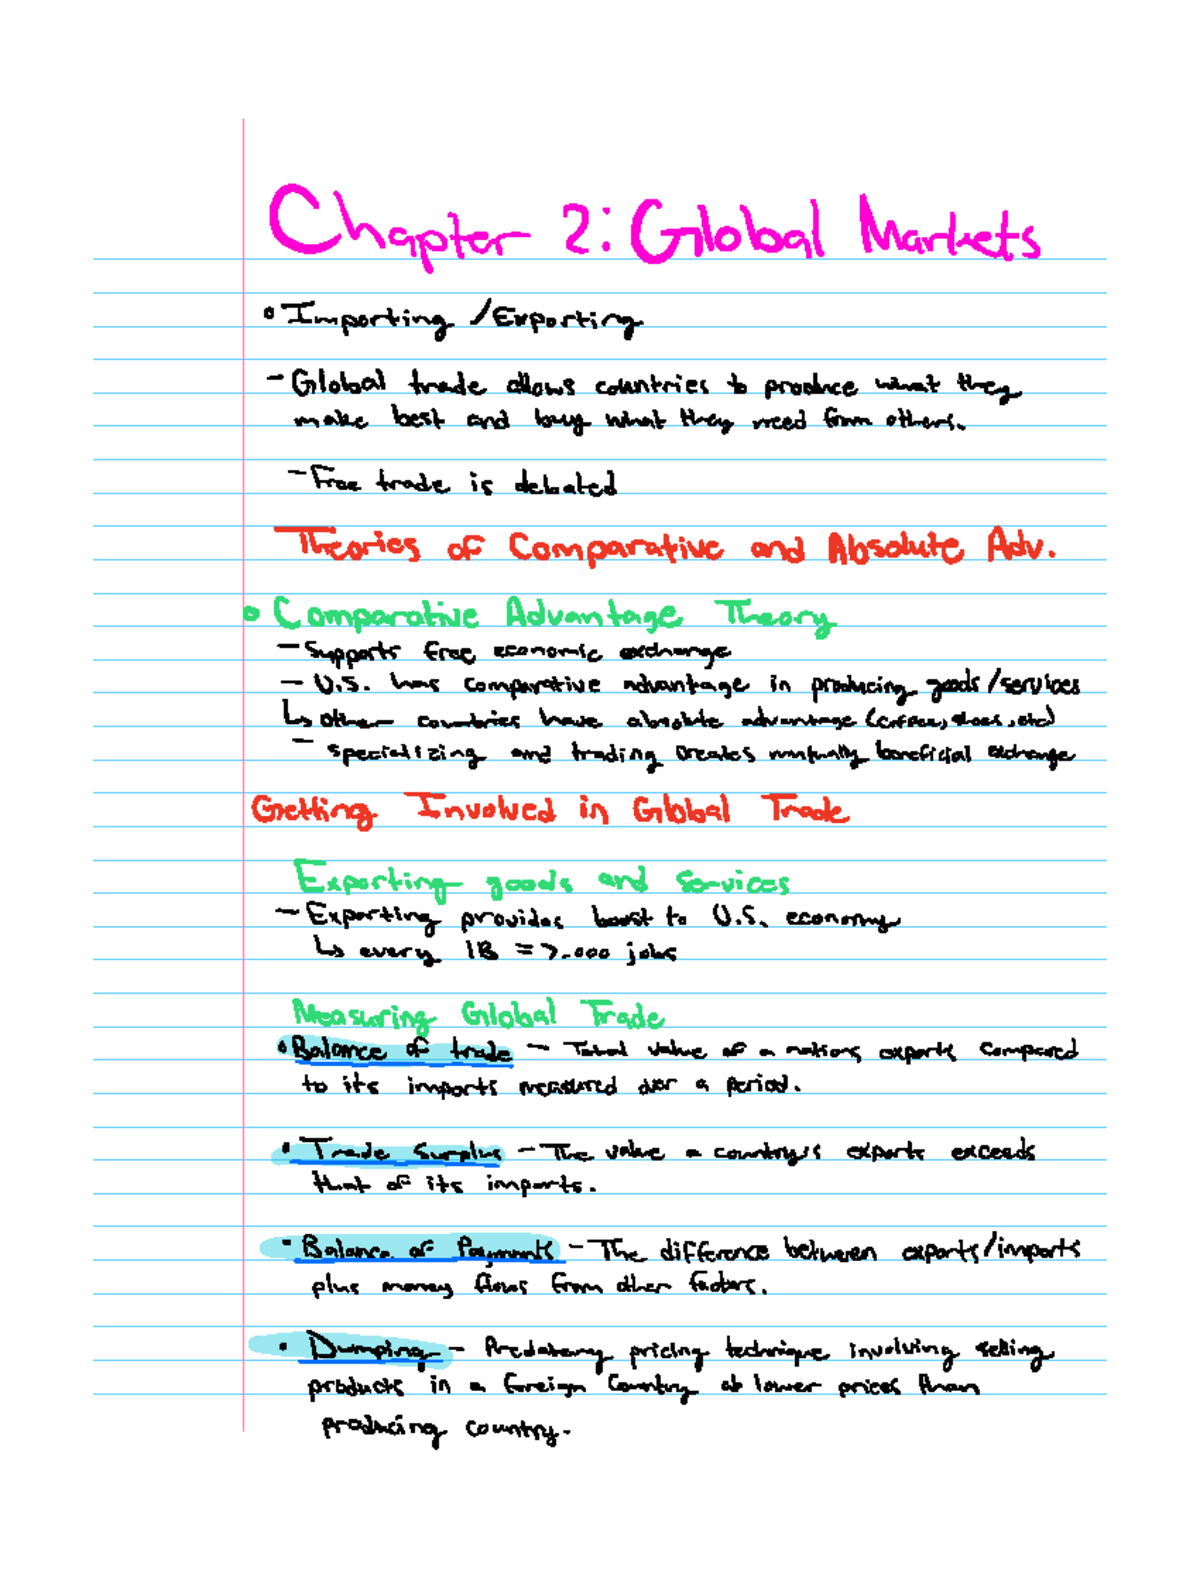 Chapter 2: Global Markets
• Importing /Exporting
- Global trade allows countries to produce what they
make best and buy what they need from others.
- Free trade is debated
Theories of Comparative and Absolute Adv.
• Comparative Advantage Theory
- Supports free economic exchange
- U.S. has comparative advantage in producing goods/services
↳ other countries have absolute advantage (coffee, shoes, etc)
- specializing and trading creates mutually beneficial exchange
Getting Involved in Global Trade
Exporting goods and services
- Exporting provides boost to U.S. economy
↳ every 1B = 7,000 jobs
Measuring Global Trade
• Balance of trade - Total value of a nations exports compared
to its imports measured over a period.
• Trade Surplus - The value a country's exports exceeds
that of its imports.
• Balance of Payments - The difference between exports/imports
plus money flows from other factors.
• Dumping - Predatory pricing technique involving selling
products in a foreign country at lower prices than
producing country.